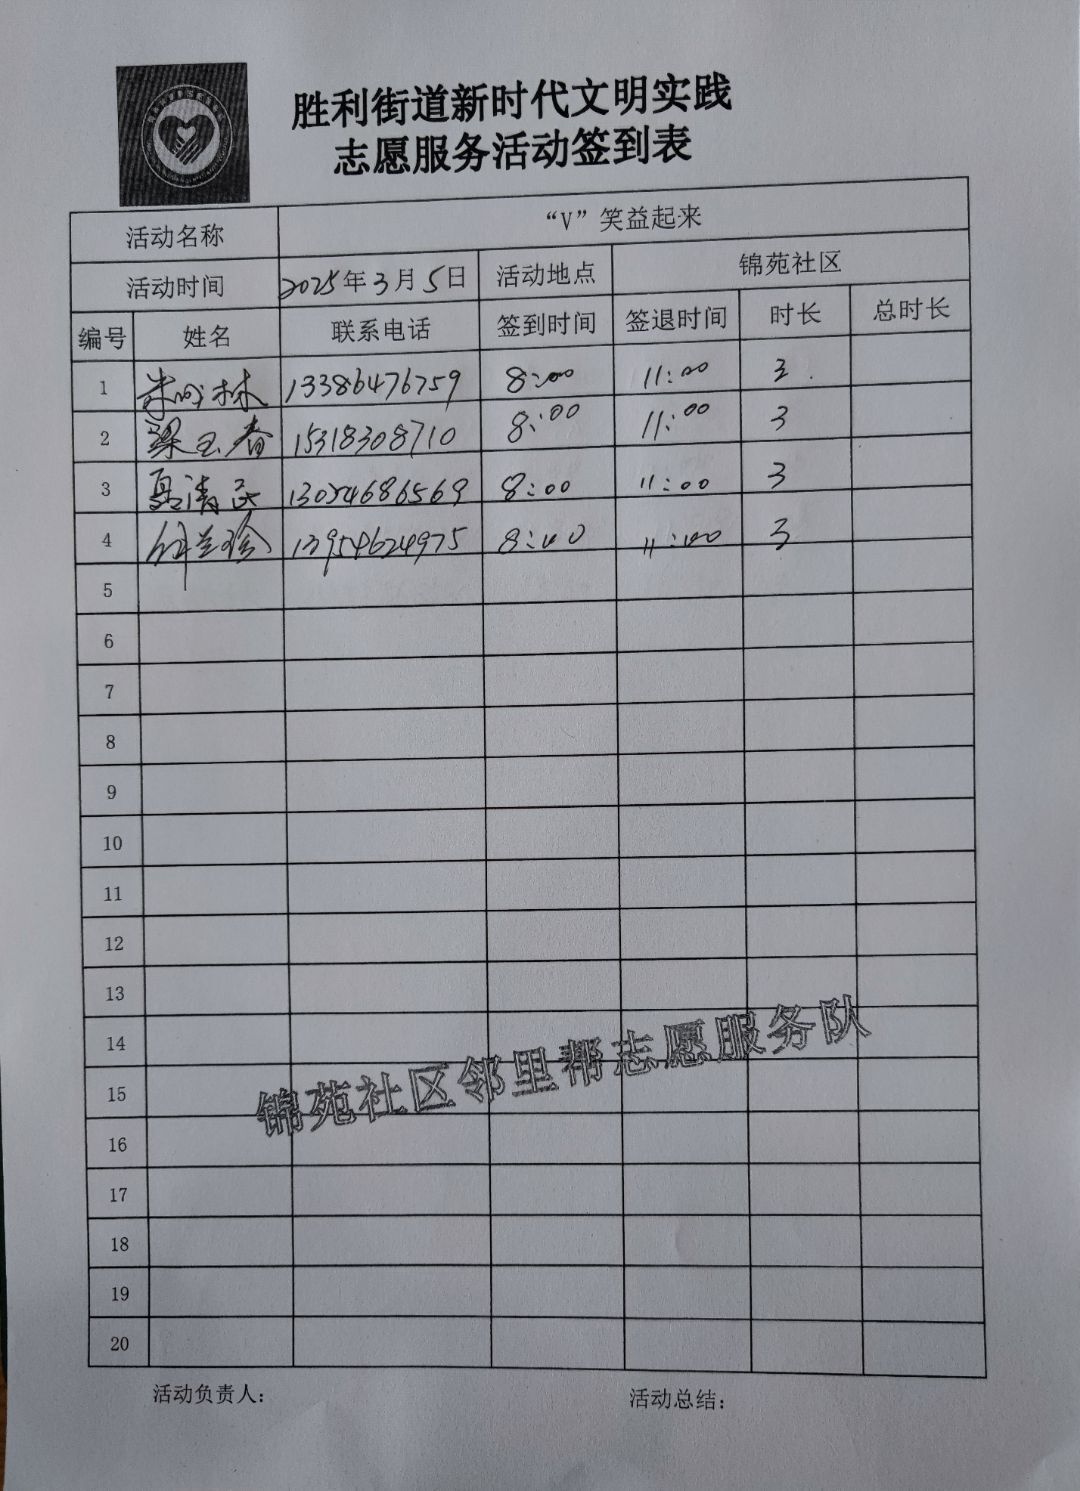 胜利街道新时代文明实践
志愿服务活动签到表
活动名称 “V”笑益起来
活动时间 2025年3月5日 活动地点 锦苑社区
编号 姓名 联系电话 签到时间 签退时间 时长 总时长
1 朱成林 13386476759 8:00 11:00 3
2 梁玉春 15318308710 8:00 11:00 3
3 清 13024686569 8:00 11:00 3
4 兰珍 13954624975 8:00 11:00 3
5
6
7
8
9
10
11
12
13
14
15
16
17
18
19
20
锦苑社区邻里帮志愿服务队
活动负责人: 活动总结: